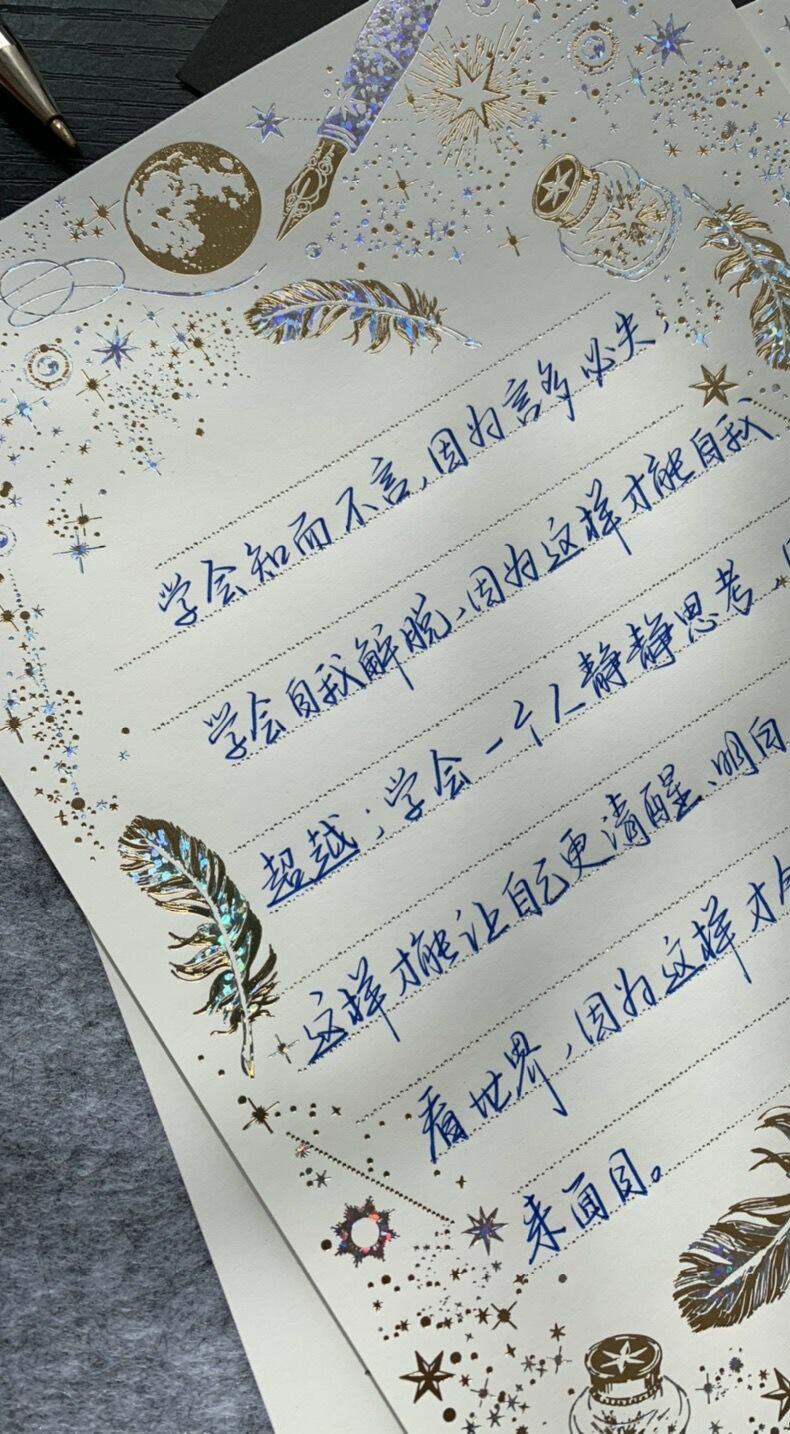 学会知而不言，因为言多必失；
学会自我解脱，因为这样才能自我
超越；学会一个人静静思考，
这样才能让自己更清醒、明白
看世界，因为这样才
来面目。